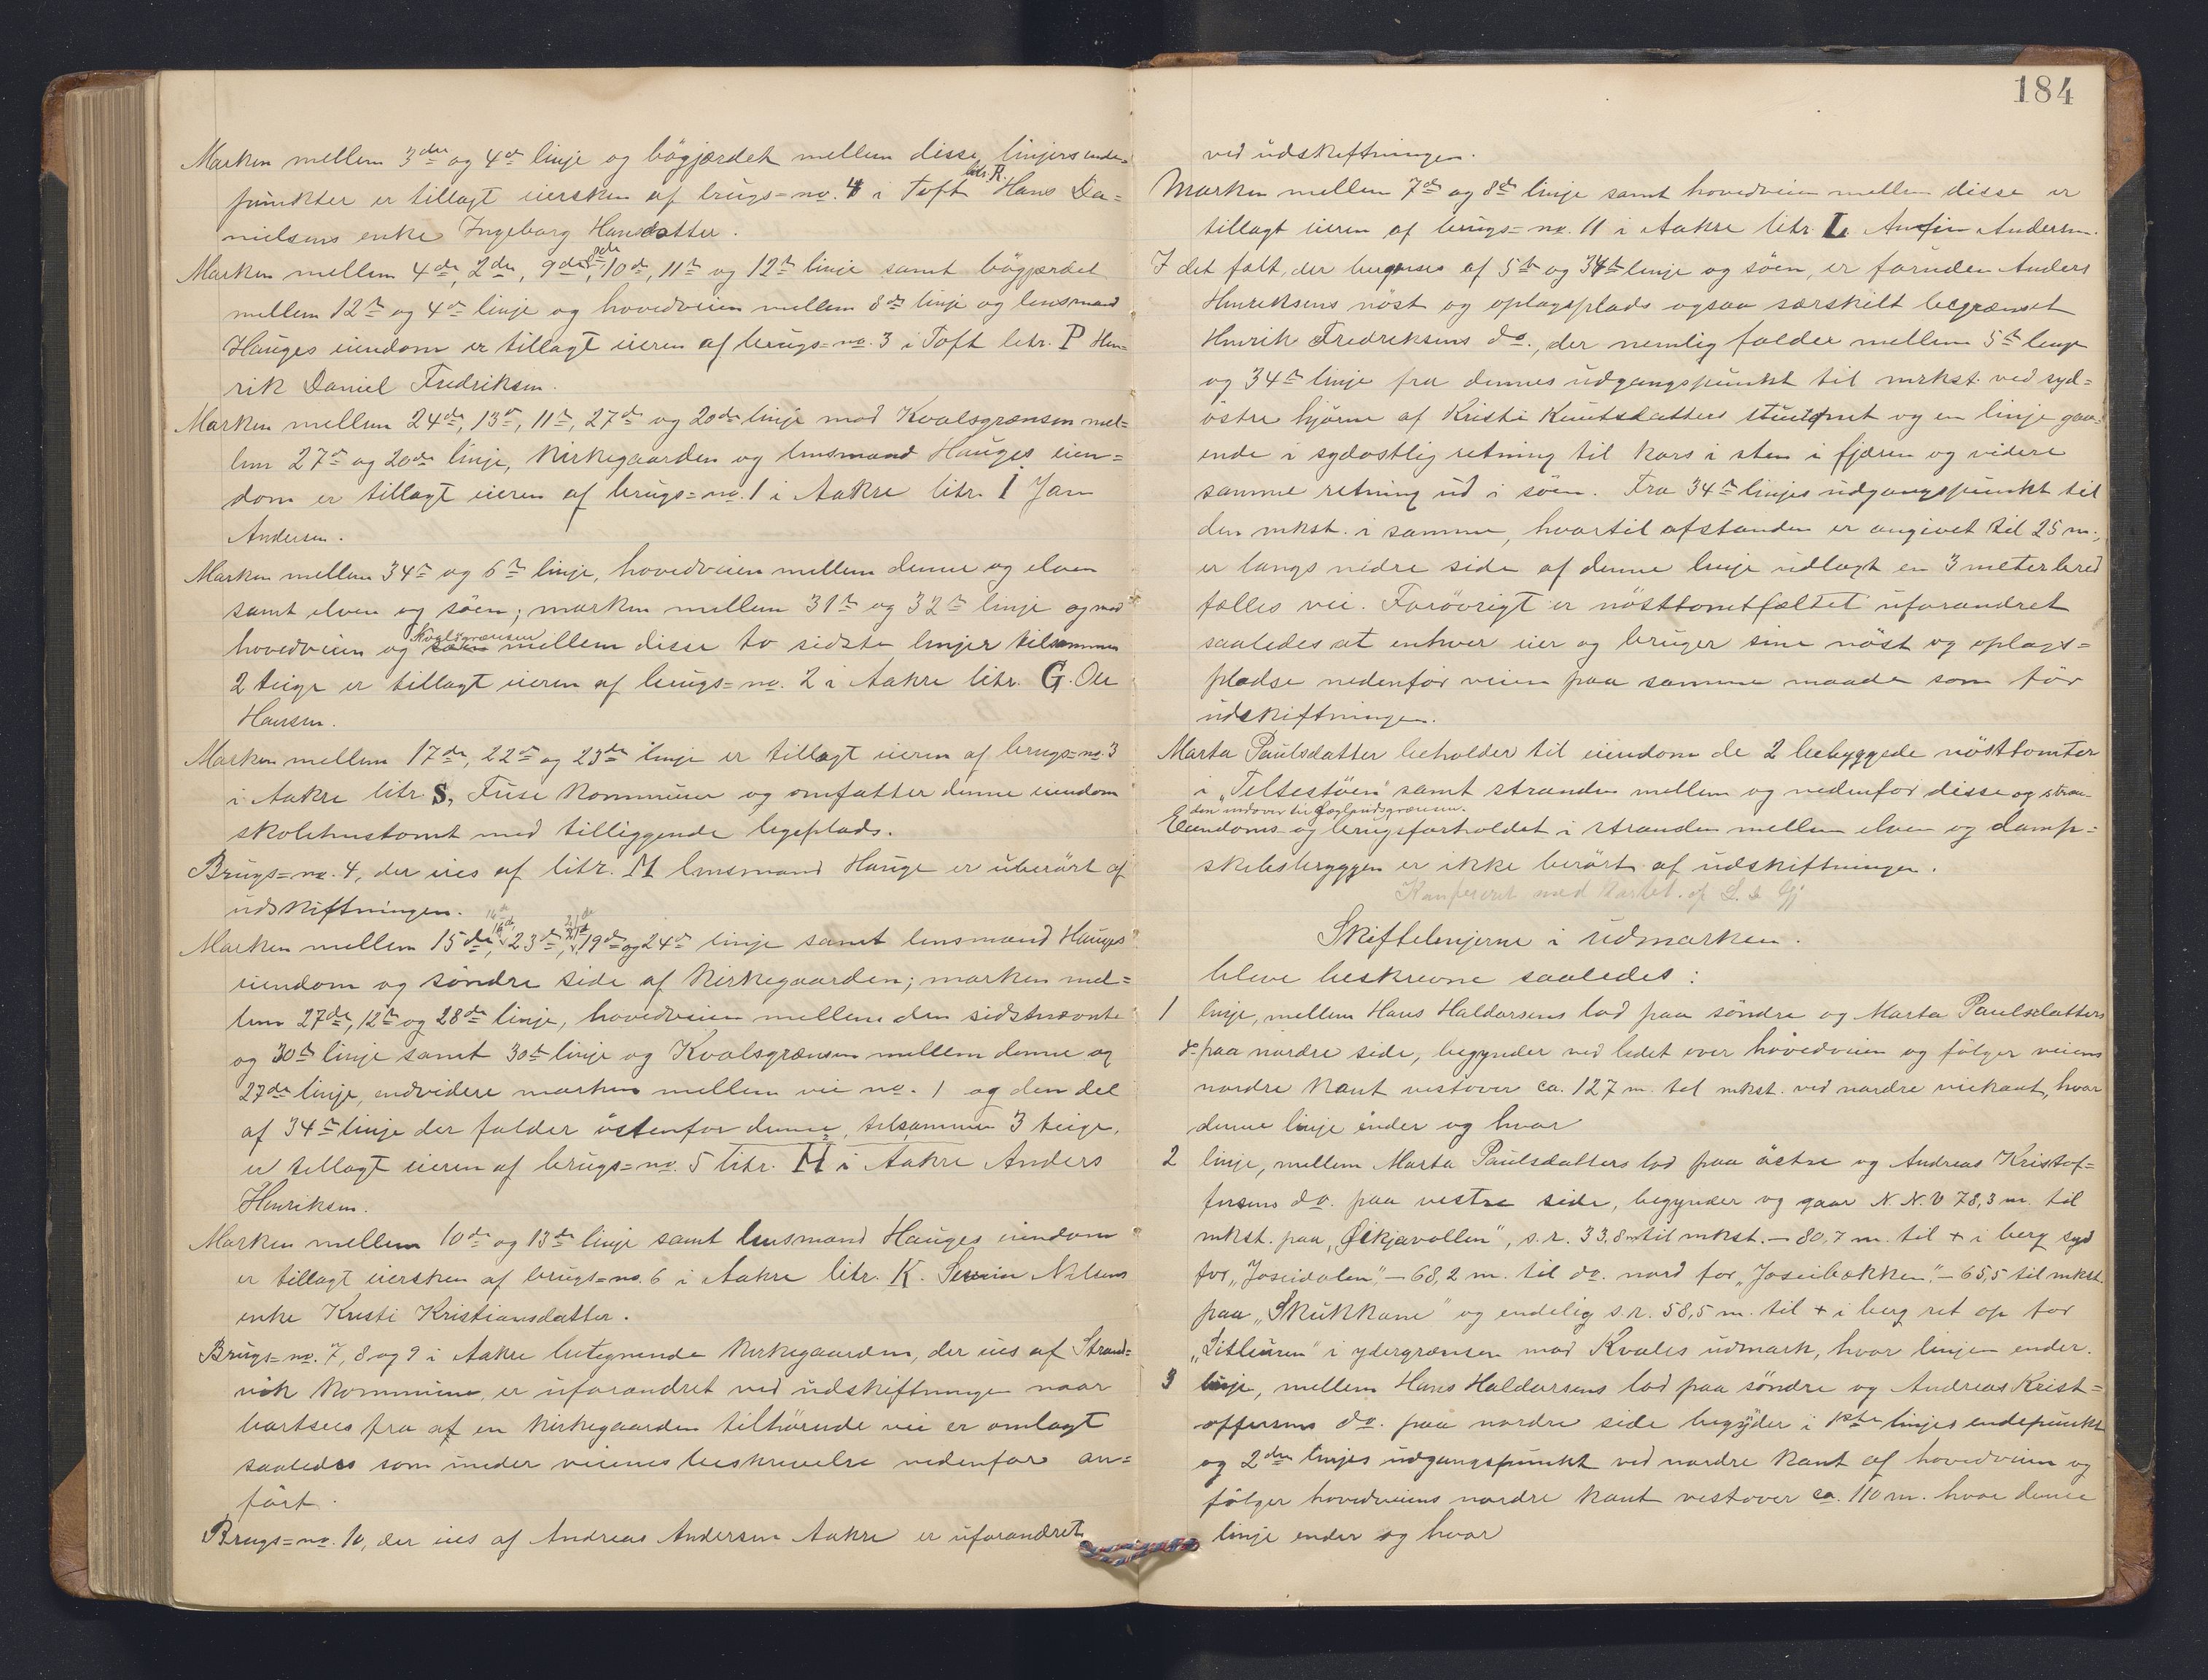 Marken mellem 3die og 4de linje og bögjærdet mellem disse linjers ende=
punkter er tillagt eiersken af brugs=no. 4 i Toft litr. R. Hans Da=
nielsens enke Ingeborg Hansdatter.
Marken mellem 4de, 2den, 9de, 8de, 10de, 11te og 12te linje samt bögjærdet
mellem 12te og 4de linje og hovedveien mellem 8de linje og lensmand
Hauges eiendom er tillagt eieren af brugs=no. 3 i Toft litr. P Hen=
rik Daniel Fredriksen.
Marken mellem 24de, 13de, 11te, 27de og 20de linje mod Kvalsgrænsen mel=
lem 27de og 20de linje, Kirkegaarden og lensmand Hauges eien=
dom er tillagt eieren af brugs=no. 1 i Aakre litr. I Jan
Andersen.
Marken mellem 34te og 6te linje, hovedveien mellem denne og elven
samt elven og söen; marken mellem 31te og 32te linje og mod
hovedveien og Kvalsgrænsen mellem disse to sidste linjer tilsammen
2 teige er tillagt eieren af brugs=no. 2 i Aakre litr. G. Ole
Hansen.
Marken mellem 17de, 22de og 23de linje er tillagt eieren af brugs=no. 3
i Aakre litr S, Fuse Kommune og omfatter denne eiendom
skolehustomt med tilliggende legeplads.
Brugs=no. 4, der eies af litr. M lensmand Hauge er uberört af
udskiftningen.
Marken mellem 15de, 16de, 23de, 21de, 19de og 24de linje samt lensmand Hauges
eiendom og söndre side af Kirkegaarden; marken mel=
lem 27de, 12te og 28de linje, hovedveien mellem den sidstnævnte
og 30te linje samt 30te linje og Kvalsgrænsen mellem denne og
27de linje, endvidere marken mellem vei no. 1 og den del
af 34te linje der falder östenfor denne, tilsammen 3 teige,
er tillagt eieren af brugs=no. 5 litr. H i Aakre Anders
Henriksen.
Marken mellem 10de og 13de linje samt lensmand Hauges eiendom
er tillagt eiersken af brugs=no. 6 i Aakre litr. K. Nilsens
enke Kristi Kristiansdatter.
Brugs=no. 7, 8 og 9 i Aakre betegnende Kirkegaarden, der eies af Strand=
vik Kommune, er uforandret ved udskiftningen naar
bortsees fra af en Kirkegaarden tilhörende vei er omlagt
saaledes som under veienes beskrivelse nedenfor an=
fört.
Brugs=no. 10, der eies af Andreas Andersen Aakre er uforandret
184
ved udskiftningen.
Marken mellem 7de og 8de linje samt hovedveien mellem disse er
tillagt eieren af brugs=no. 11 i Aakre litr. L Anfin Andersen.
I det felt, der begrænses af 5te og 34te linje og söen, er foruden Anders
Henriksens nöst og oplagsplads ogsaa særskilt begrænset
Henrik Fredriksens do., der nemlig falder mellem 5te linje
og 34te linje fra dennes udgangspunkt til mrkst. ved syd=
östre hjörne af Kristi Knutsdatters og en linje gaa=
ende i sydostlig retning til kors i sten i fjæren og videre
samme retning ud i söen. Fra 34te linjes udgangspunkt til
den mkst. i samme, hvortil afstanden er angivet til 25 m.,
er langs nedre side af denne linje udlagt en 3 meter bred
fælles vei. Forövrigt er nösttomtfeltet uforandret
saaledes at enhver eier og bruger sine nöst og oplags=
pladse nedenfor veien paa samme maade som för
udskiftningen.
Marta Paulsdatter beholder til eiendom de 2 bebyggede nösttomter
i "Teltestöen" samt stranden mellem og nedenfor disse og stran=
den indover til grænsen.
Eiendoms og brugsforholdet i stranden mellem elven og damp=
skibsbryggen er ikke berört af udskiftningen.
Konfereret med Kartet.
Skiftelinjerne i udmarken.
bleve beskrevne saaledes:
1 linje, mellem Hans Haldorsens lod paa söndre og Marta Paulsdatters
do. paa nordre side, begynder ved ledet over hovedveien og fölger veiens
nordre kant vestover ca. 127 m. til mkst. ved nordre veikant, hvor
denne linje ender og hvor
2 linje, mellem Marta Paulsdatters lod paa östre og Andreas Kristof=
fersens do. paa vestre side, begynder og gaar N. N. V 78,3 m. til
mkst. paa "Öikjavollen", s. r. 33,8 m til mkst. — 80,7 m. til + i berg syd
for "Joseidalen", — 68,2 m. til do. nord for "Joseibækken", — 65,5 til mkst.
paa "Skukkane" og endelig s. r. 58,5 m. til + i berg ret op for
"Litleuren" i ydergrænsen mod Kvales udmark, hvor linjen ender.
3 linje, mellem Hans Haldorsens lod paa söndre og Andreas Krist=
offersens do. paa nordre side begynder i 1ste linjes endepunkt
og 2den linjes udgangspunkt ved nordre kant af hovedveien og
fölger hovedveiens nordre kant vestover ca. 110 m. hvor denne
linje ender og hvor